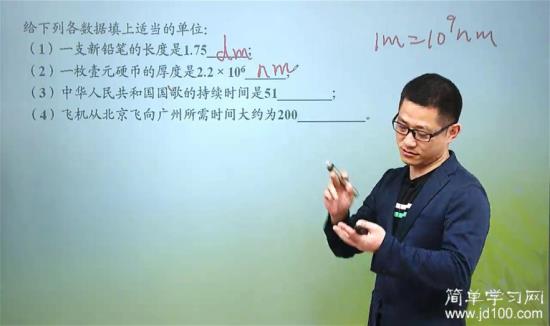 给下列各数据填上适当的单位:
(1)一支新铅笔的长度是1.75 dm;
(2)一枚壹元硬币的厚度是2.2 × 10⁶ nm;
(3)中华人民共和国国歌的持续时间是51______;
(4)飞机从北京飞向广州所需时间大约为200______。
1m=10⁹nm
简单学习网
www.jd100.com